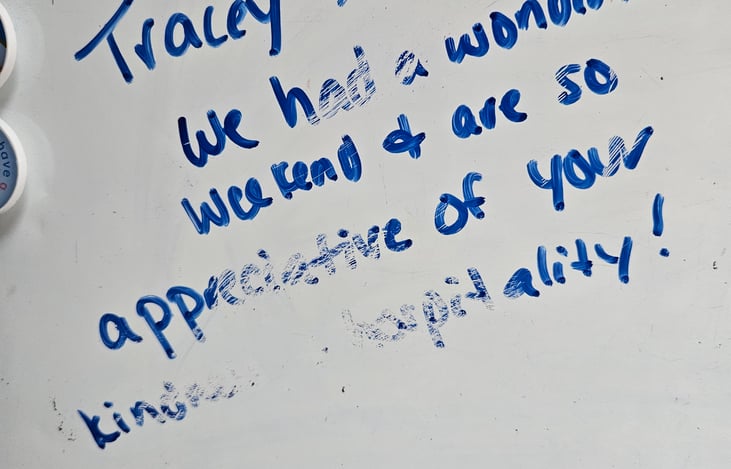 Tracey
We had a
weekend & are so
appreciative of your
hospitality!
have a